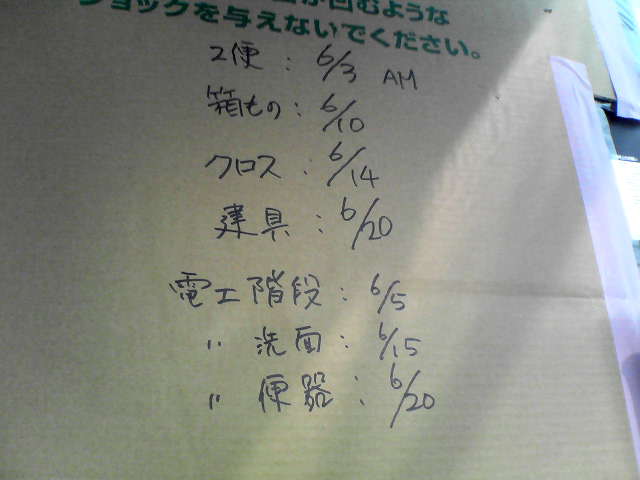 が凹むような
ショックを与えないでください。
2便：6/3 AM
箱もの：6/10
クロス：6/14
建具：6/20
電工階段：6/5
〃 洗面：6/15
〃 便器：6/20